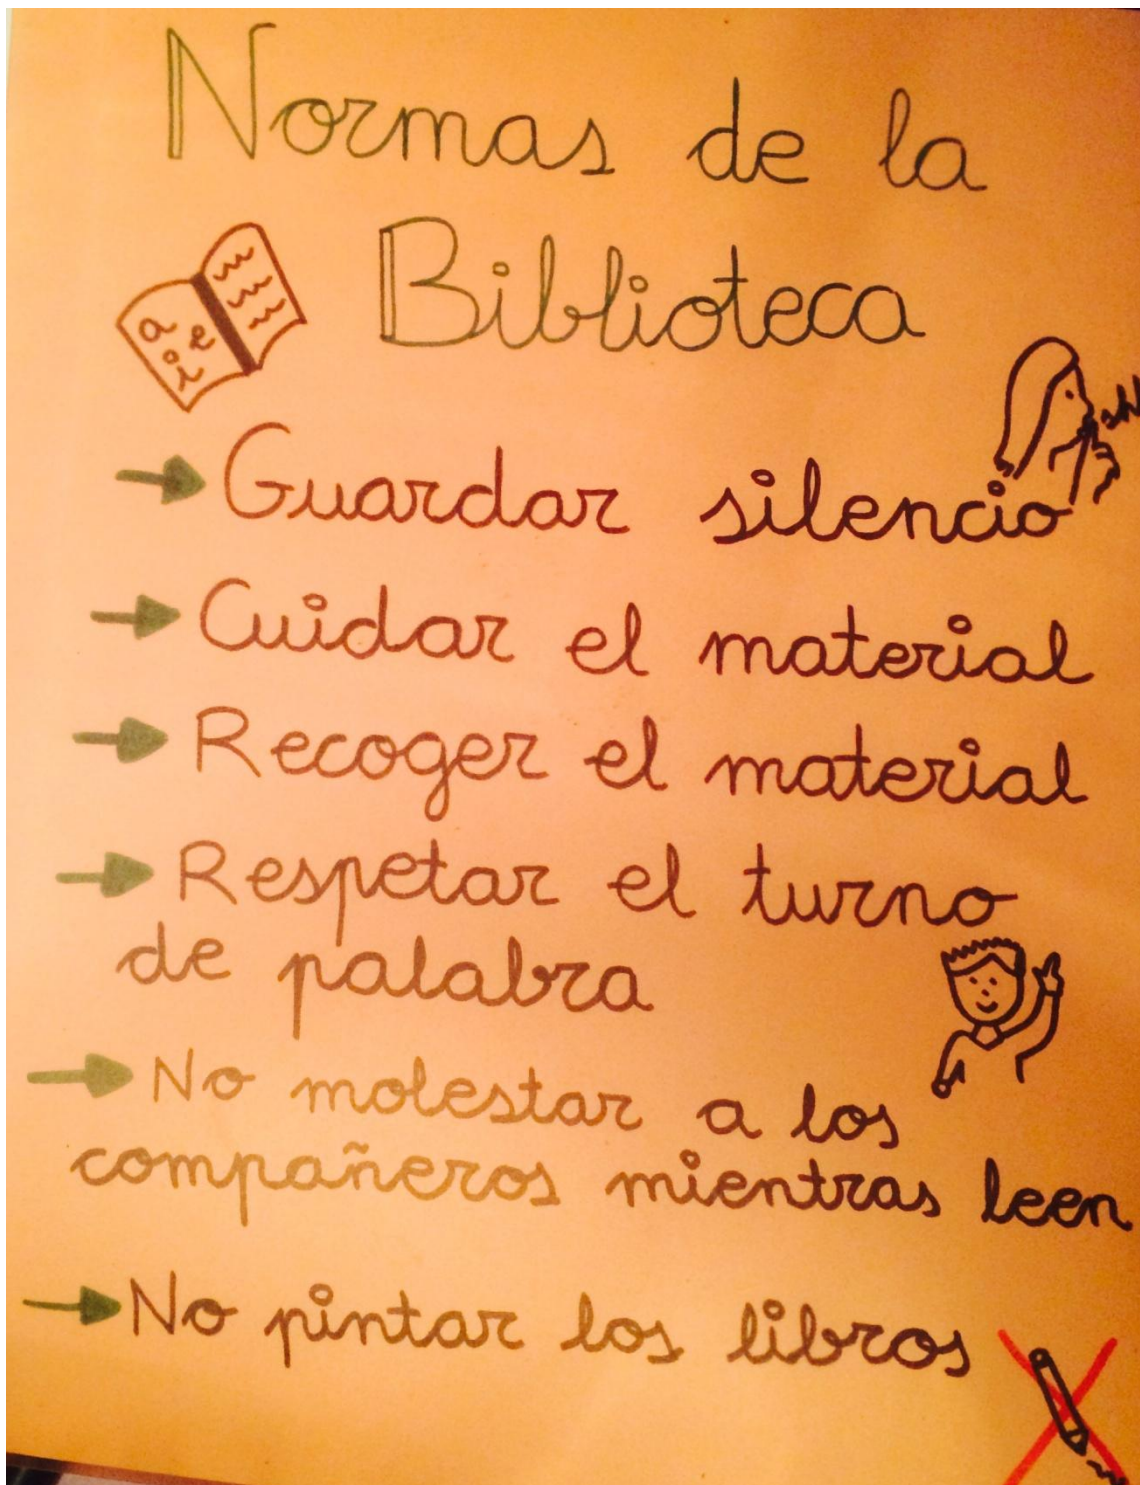 Normas de la
Biblioteca
a e
i
Guardar silencio
Cuidar el material
Recoger el material
Respetar el turno
de palabra
No molestar a los
compañeros mientras leen
No pintar los libros